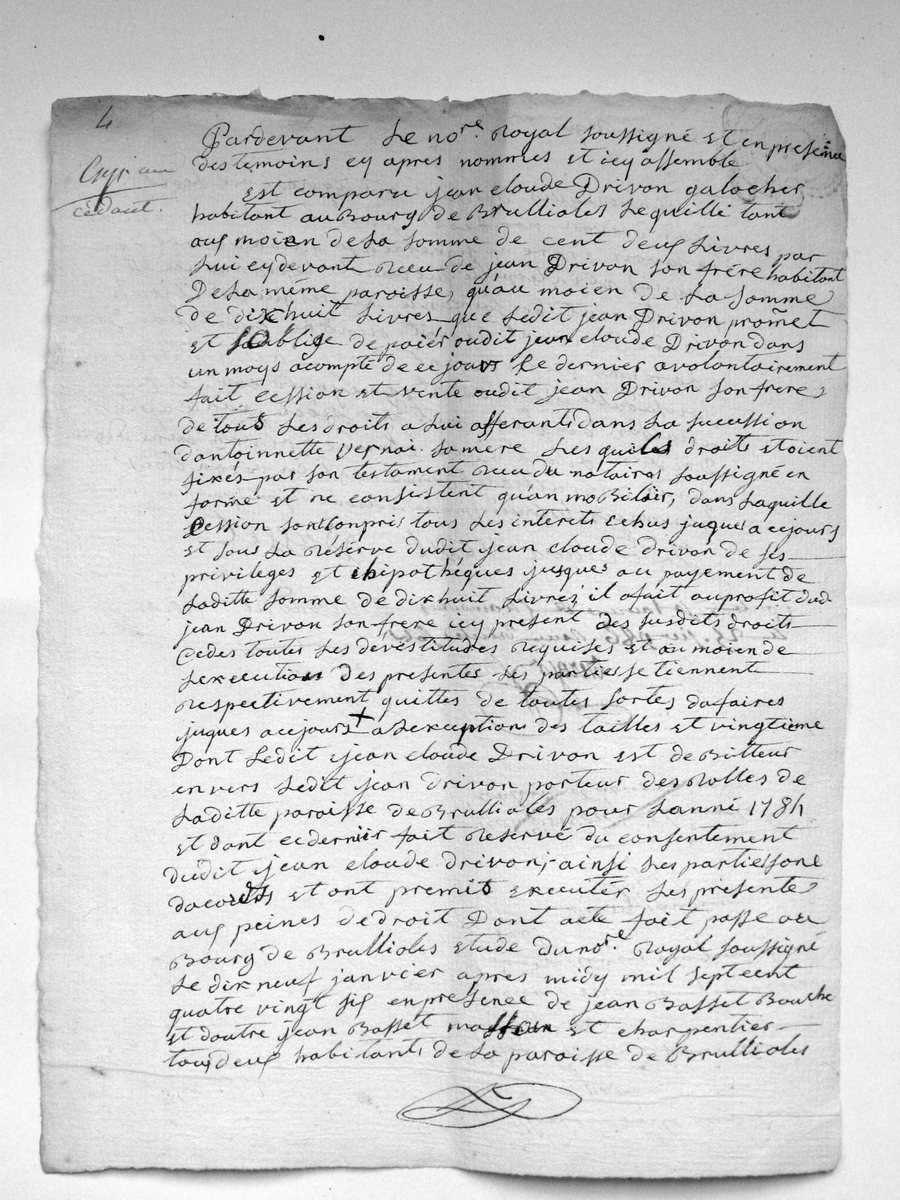 4
Expr au
cédant.
Pardevant Le no.re Royal soussigné et en presence
des temoins cy apres nommés et icy assemblé
est comparu jean claude Drivon galocher
habitant au Bourg de Brullioles Lequille tant
aux moien de La somme de cent deux Livres par
Lui cy devant Receu de jean Drivon son frére habitant
De La même paroisse, qu'au moien de La somme
de dix huit Livres que Ledit jean Drivon promet
et s'oblige de paiér oudit jean claude Drivon dans
un moys a compté de ce jours Ce dernier a volontairement
fait cession et vente oudit jean Drivon son frere
de tous Les droits a Lui afferants dans La sucussion
dantoinnette vernai sa mére Les quiles droits etoient
fixés par son testament Receu du notaires soussigné en
forme et ne consistent qu'an moBiliér, dans Laquille
Cession sont compris tous Les interets echus juques a ce jours
et sous La Résérve dudit jean claude drivon de ses
privileges et hipothéques jusques au payement de
Laditte somme de dix huit Livres, il a fait au profit dud.
jean Drivon son frére icy present des susdits droits
Cedes toutes Les dévéstitudes Requises et au moien de
Lexecutions des presentes Les parties se tiennent
Respectivement quittes de toutes sortes dafaires
juques a ce jours + a Lexception des tailles et vingtieme
Dont Ledit jean claude Drivon est deBitteur
envers Ledit jean Drivon porteur des Rolles de
Laditte paroisse de Brullioles pour Lanné 1784
et dont ce dernier fait Reservé du consentement
dudit jean claude drivon, ainsi Les parties sont
dacords et ont premis executer Les présente
aux peines de droit Dont acte fait passé au
Bourg de Brullioles etude du no.re Royal soussigné
Le dix neuf janvier apres midy mil sept cent
quatre vingt six en présence de jean Basset Bouche
et dautre jean Basset masson et charpentier
tous deux habitants de La paroisse de Brullioles